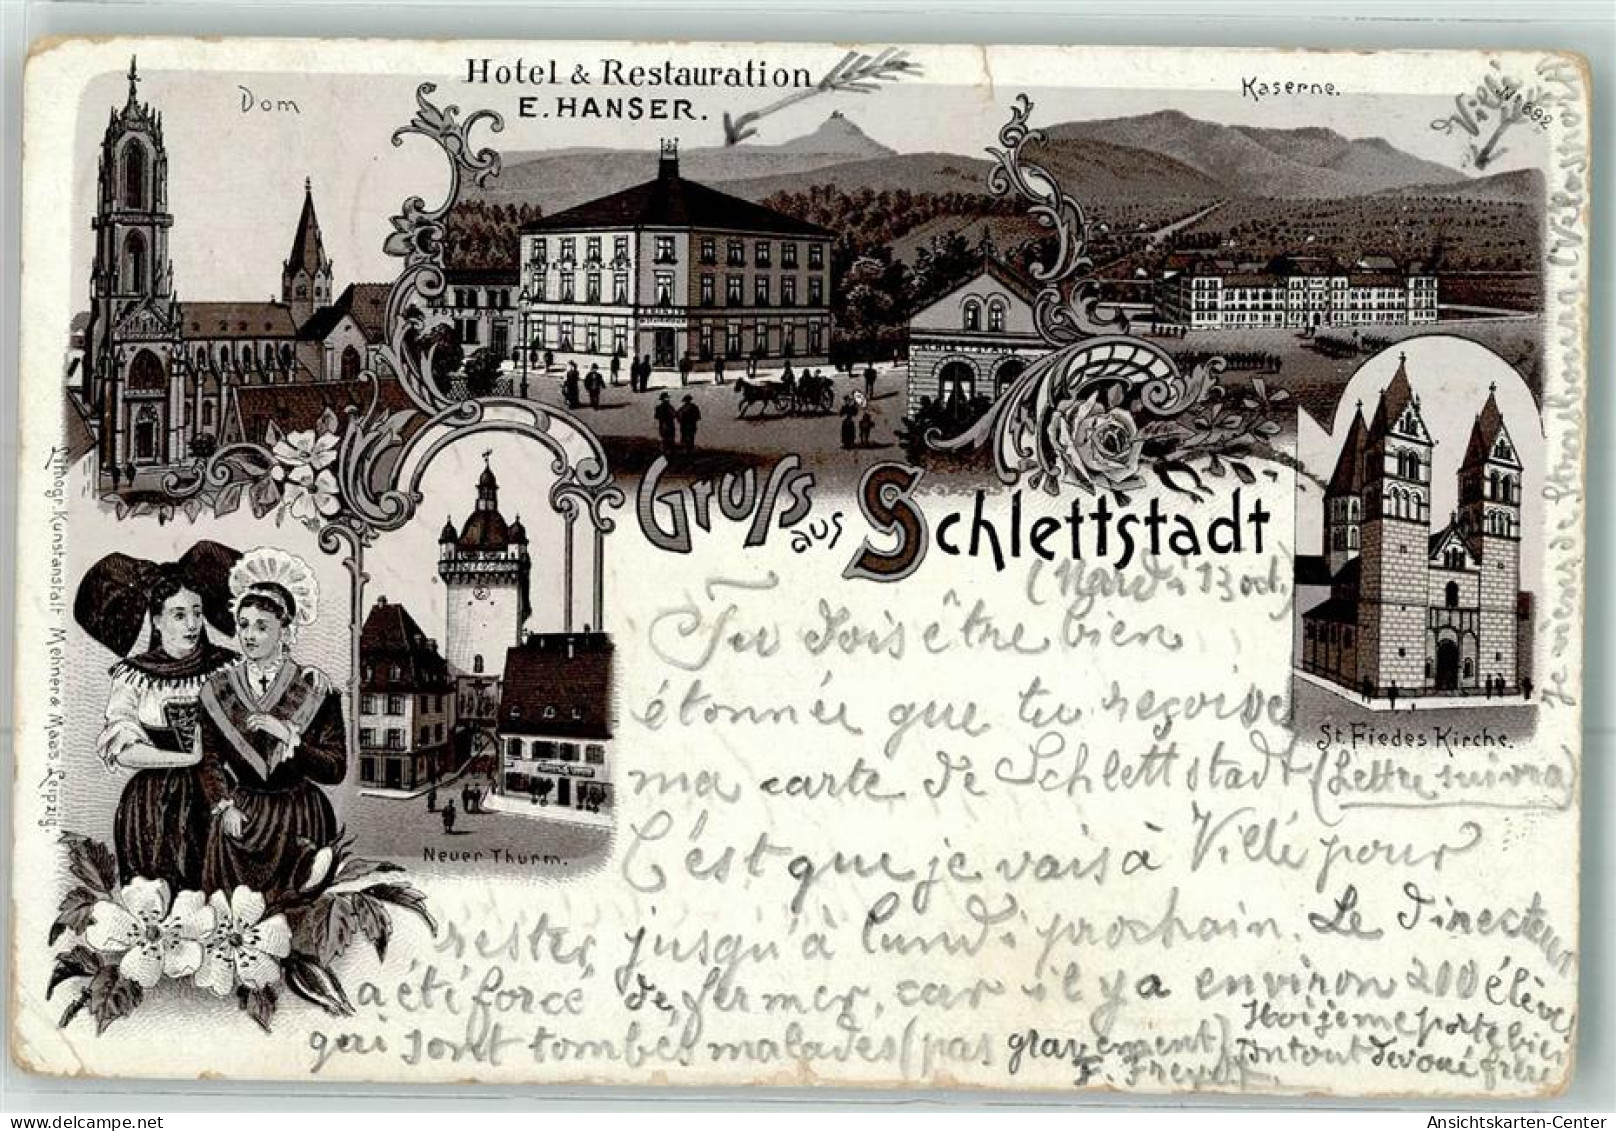 Hotel & Restauration
E. HANSER.
Dom
Kaserne.
Nº 692
Villé
Gruss aus Schlettstadt
Neuer Thurm.
St. Fiedes Kirche.
Lithogr. Kunstanstalt Mehner & Maas Leipzig.
(Mardi 13 oct.)
Tu dois être bien
étonnée que tu reçoive
ma carte de Schlettstadt (Lettre suivra)
C'est que je vais à Villé pour
rester jusqu'à lundi prochain. Le Directeur
a été forcé de fermer, car il y a environ 200 élèves
qui sont tombés malades (pas gravement)
Moi je me porte bien
Ton tout dévoué frère
Je viens de Strasbourg.
Ansichtskarten-Center